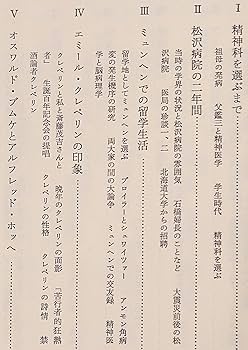 I 精神科を選ぶまで……………
祖母の発病　父鑑三と精神医学　学生時代　精神科を選ぶ
II 松沢病院の二年間……………
当時の学界の状況と松沢病院の雰囲気　石橋婦長のことなど　大震災前後の松
沢病院　医局の診談一、二　北海道大学からの招聘
III ミュンヘンでの留学生活……………
留学地としてミュンヘンを選ぶ　ブロイラーとシュワイツァー　アンモン角病
変の発生機序の研究　両大家の間の大論争　ミュンヘンでの交友録　精神医
学と脳病理学
IV エミール・クレペリンの印象……………
クレペリンと私と斎藤茂吉さんと　晩年のクレペリンの面影　「苦行者的狂熱
者」　生誕百年記念会の提唱　クレペリンの性格　クレペリンの詩情　禁
酒論者クレペリン
V オスワルド・ブムケとアルフレッド・ホッヘ